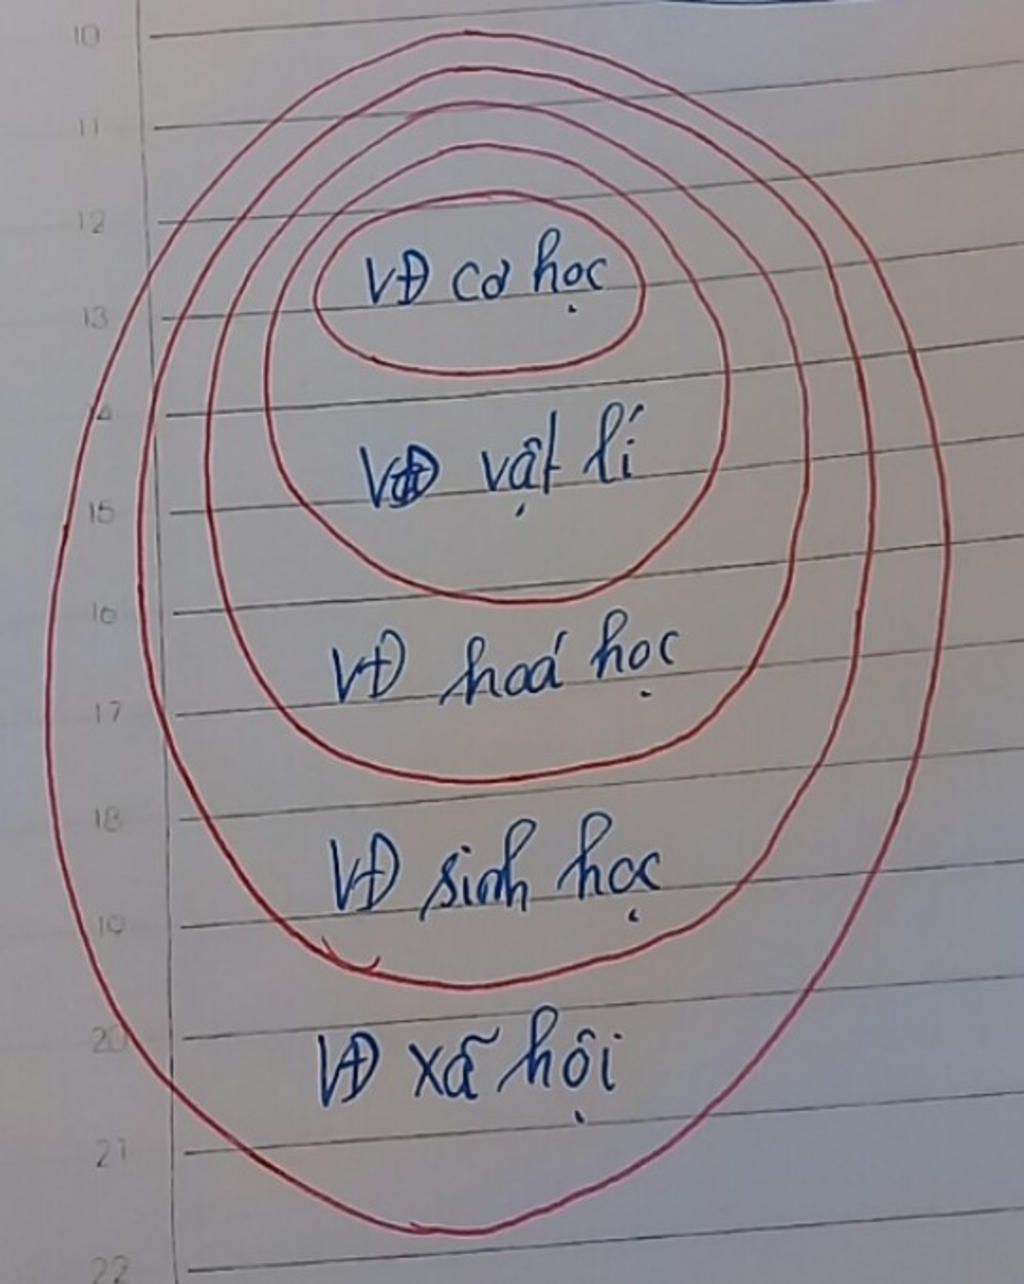 10
11
12
VĐ cơ học
13
14
VĐ vật lí
15
16
VĐ hoá học
17
18
VĐ sinh học
19
20
VĐ xã hội
21
22